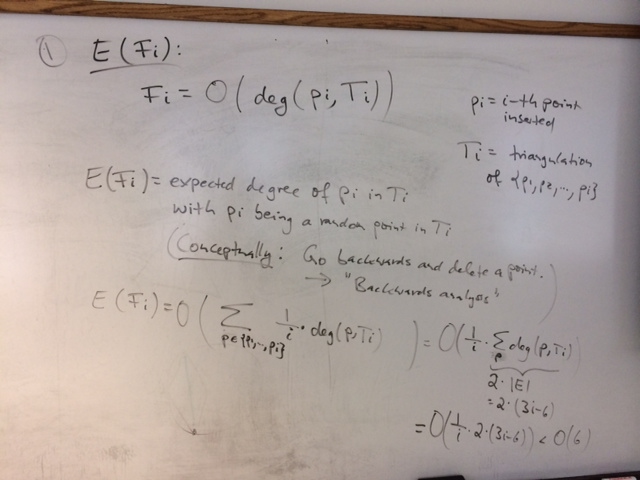 ① E(Fi):
Fi = O(deg(pi, Ti))
pi = i-th point
inserted
Ti = triangulation
of {p1, p2, ..., pi}
E(Fi) = expected degree of pi in Ti
with pi being a random point in Ti
(Conceptually: Go backwards and delete a point.
→ "Backwards analysis")
E(Fi) = O( ∑ p∈{p1,..,pi} 1/i · deg(p,Ti) ) = O(1/i · ∑p deg(p,Ti))
2·|E|
= 2·(3i-6)
= O(1/i · 2·(3i-6)) < O(6)